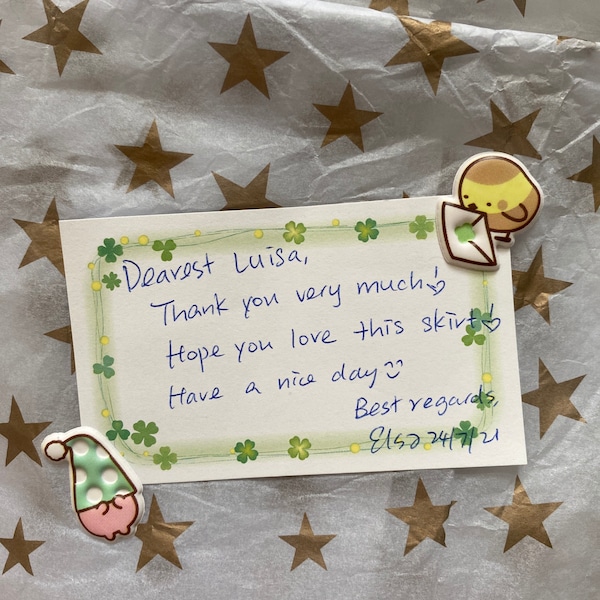 Dearest Luisa,
Thank you very much!
Hope you love this skirt!
Have a nice day
Best regards,
Elsa 24/7/21